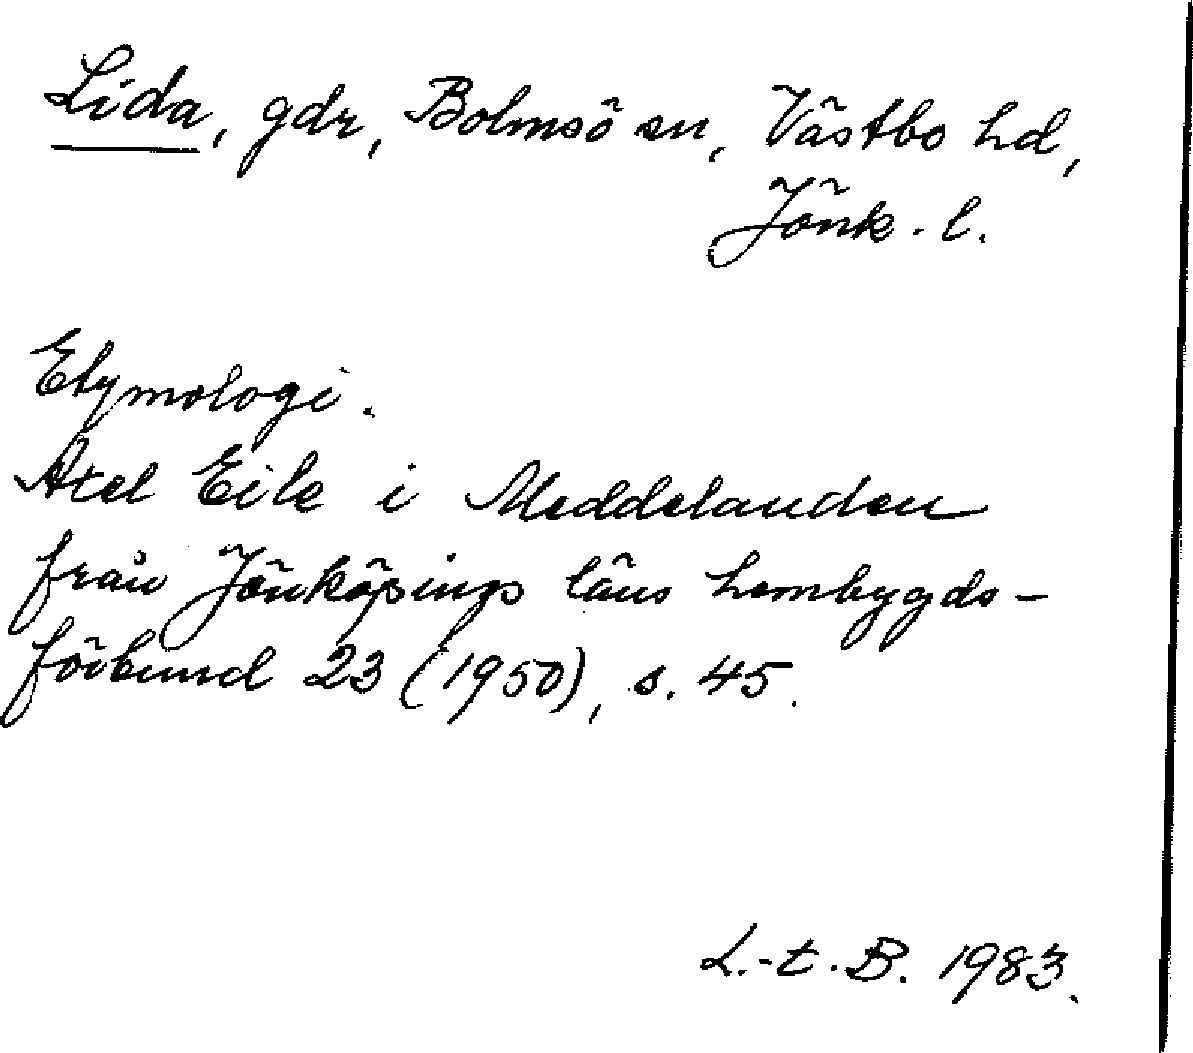 Lida, gdr, Bolmsö sn, Västbo hd,
Jönk. l.
Etymologi.
Axel Eile i Meddelanden
från Jönköpings läns hembygds-
förbund 23 (1950), s. 45.
L.-t. B. 1983.